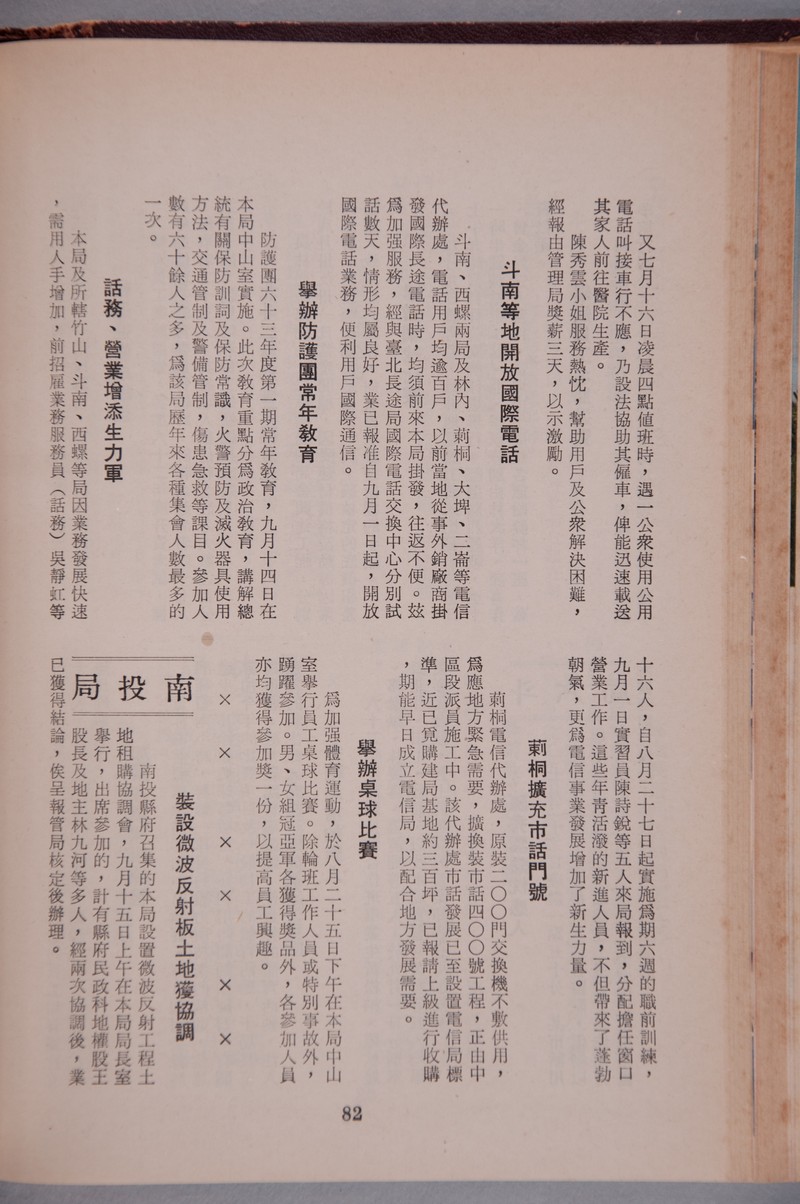 又七月十六日凌晨四點值班時，遇一公衆使用公用
電話叫接車行不應，乃設法協助其僱車，俾能迅速載送
其家人前往醫院生產。
陳秀雲小姐服務熱忱，幫助用戶及公衆解決困難，
經報由管理局獎薪三天，以示激勵。
斗南等地開放國際電話
斗南、西螺兩局及林內、莿桐、大埤、二崙等電信
代辦處，電話用戶均逾百戶，以前當地從事外銷廠商掛
發國際長途電話時，均須前來本局掛發，往返不便。玆
爲加强服務，經與臺北長途局國際電話交換中心分別試
話數天，情形均屬良好，業已報准自九月一日起，開放
國際電話業務，便利用戶國際通信。
舉辦防護團常年敎育
防護團六十三年度第一期常年敎育，九月十四日在
本局中山室實施。此次敎育重點分爲政治敎育，講解總
統有關保防訓詞及保防常識，火警預防及滅火器具使用
方法，交通管制及警備管制，傷患急救等課目。參加人
數有六十餘人之多，爲該局歷年來各種集會人數最多的
一次。
話務、營業增添生力軍
本局及所轄竹山、斗南、西螺等局因業務發展快速
，需用人手增加，前招雇業務服務員（話務）吳靜虹等
十六人，自八月二十七日起實施爲期六週的職前訓練，
九月一日實習員陳詩銳等五人來局報到，分配擔任窗口
營業工作。這些年青活潑的新進人員，不但帶來了蓬勃
朝氣，更爲電信事業發展增加了新生力量。
莿桐擴充市話門號
莿桐電信代辦處，原裝二〇〇門交換機不敷供用，
爲應地方緊急需要，擴換裝市話四〇〇號工程，正由中
區段派員施工中。該代辦處市話發展已至設置電信局標
準，近已覓購建局基地約三百坪，已報請上級進行收購
，期能早日成立電信局，以配合地方發展需要。
舉辦桌球比賽
爲加强體育運動，於八月二十五日下午在本局中山
室舉行員工桌球比賽。除輪班工作人員或特別事故外，
踴躍參加。男、女組冠亞軍各獲得獎品外，各參加人員
亦均獲得參加獎一份，以提高員工興趣。
× × × × × ×
南投局
裝設微波反射板土地獲協調
南投縣府召集的本局設置微波反射工程土
地租購協調會，九月十五日上午在本局局長室
擧行，出席參加的，計有縣府民政科地權股王
股長及地主林九河等多人，經兩次協調後，業
已獲得結論，俟呈報管局核定後辦理。
82